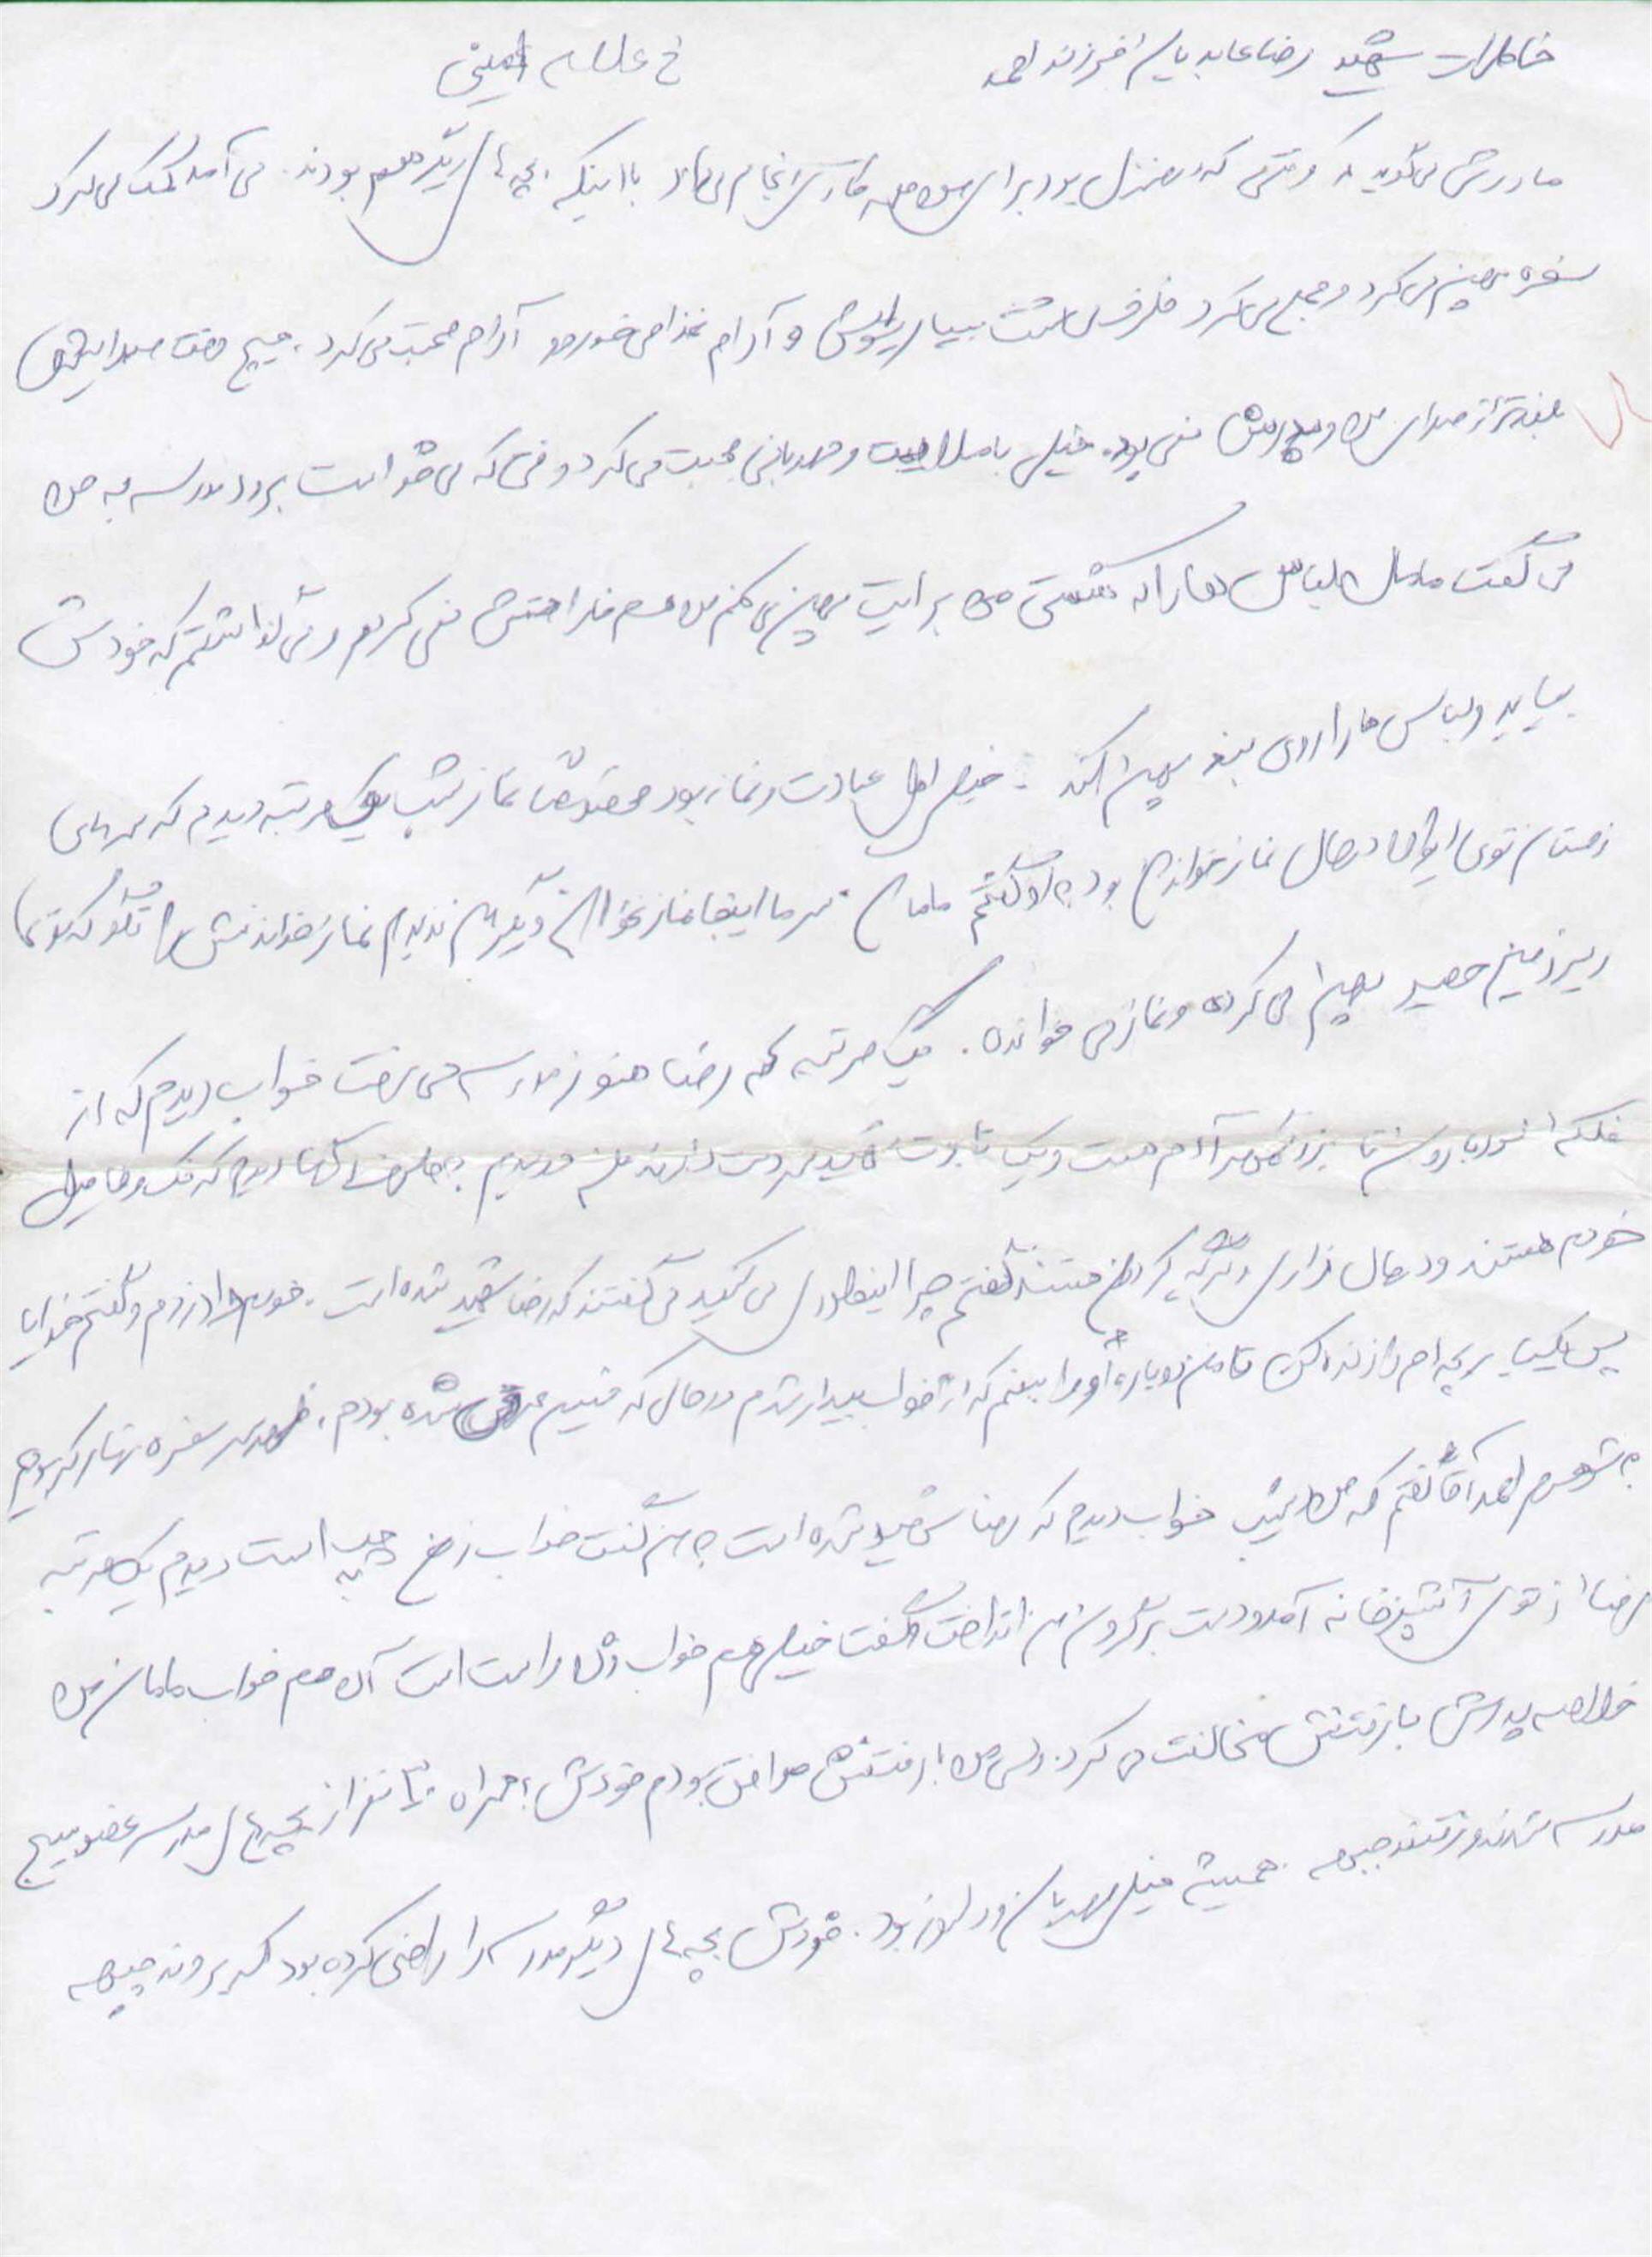 خاطرات شهید رضا عابد یان فرزند احمد خ علامه امینی
مادرش می گوید که وقتی که در منزل بود برای من همه کاری انجام می داد با اینکه بچه های دیگر هم بودند. می آمد کمک می کرد
سفره پهن می کرد و جمع می کرد ظرف می شست بسیار یواش و آرام غذا می خورد و آرام صحبت می کرد. هیچ وقت صدایش
بلندتر از صدای من و پدرش نمی بود. خیلی با ملایمت و مهربانی صحبت می کرد وقتی که می خواست برود مدرسه به من
می گفت مامان لباس ها را که شستی من برایت پهن می کنم من هم ناراحتش نمی کردم و می گذاشتم که خودش
بیاید و لباس ها را روی بند پهن کند. خیلی اهل عبادت و نماز بود مخصوصا نماز شب یک مرتبه دیدم که سرمای
زمستان توی ایوان در حال نماز خواندن بود به او گفتم مامان سرما اینجا نماز نخوان دیگر من ندیدم نماز خواندنش را نگو که تو
زیرزمین حصیر پهن می کرده و نماز می خوانده. یک مرتبه که رضا هنوز مدرسه می رفت خواب دیدم که از
فلکه تا آدم هست و یک تابوت روی دست دارند
خودم هستند و در حال زاری و گریه کردن هستند گفتم چرا اینطوری می کنید می گفتند که رضا شهید شده است. خودم داد زدم و گفتم خدایا
پس یکبار بچه ام را زنده کن تا من دوباره او را ببینم که از خواب بیدار شدم در حالی که خیس عرق شده بودم. ظهر سر سفره نهار که بودیم
به شوهرم احمد آقا گفتم که من دیشب خواب دیدم که رضا شهید شده است به من گفت خواب زن چپ است دیدم یک مرتبه
رضا از توی آشپزخانه آمد و دست بر گردن من انداخت و گفت خیلی هم خواب زن راست است آن هم خواب مامان من
خلاصه پدرش با رفتنش مخالفت می کرد. ولی من با رفتنش موافق بودم خودش به همراه نفر از بچه های مدرسه عضو بسیج
مدرسه شدند و رفتند جبهه. همیشه خیلی مهربان و دلسوز بود. خودش بچه های دیگر مدرسه را راضی کرده بود که بروند جبهه